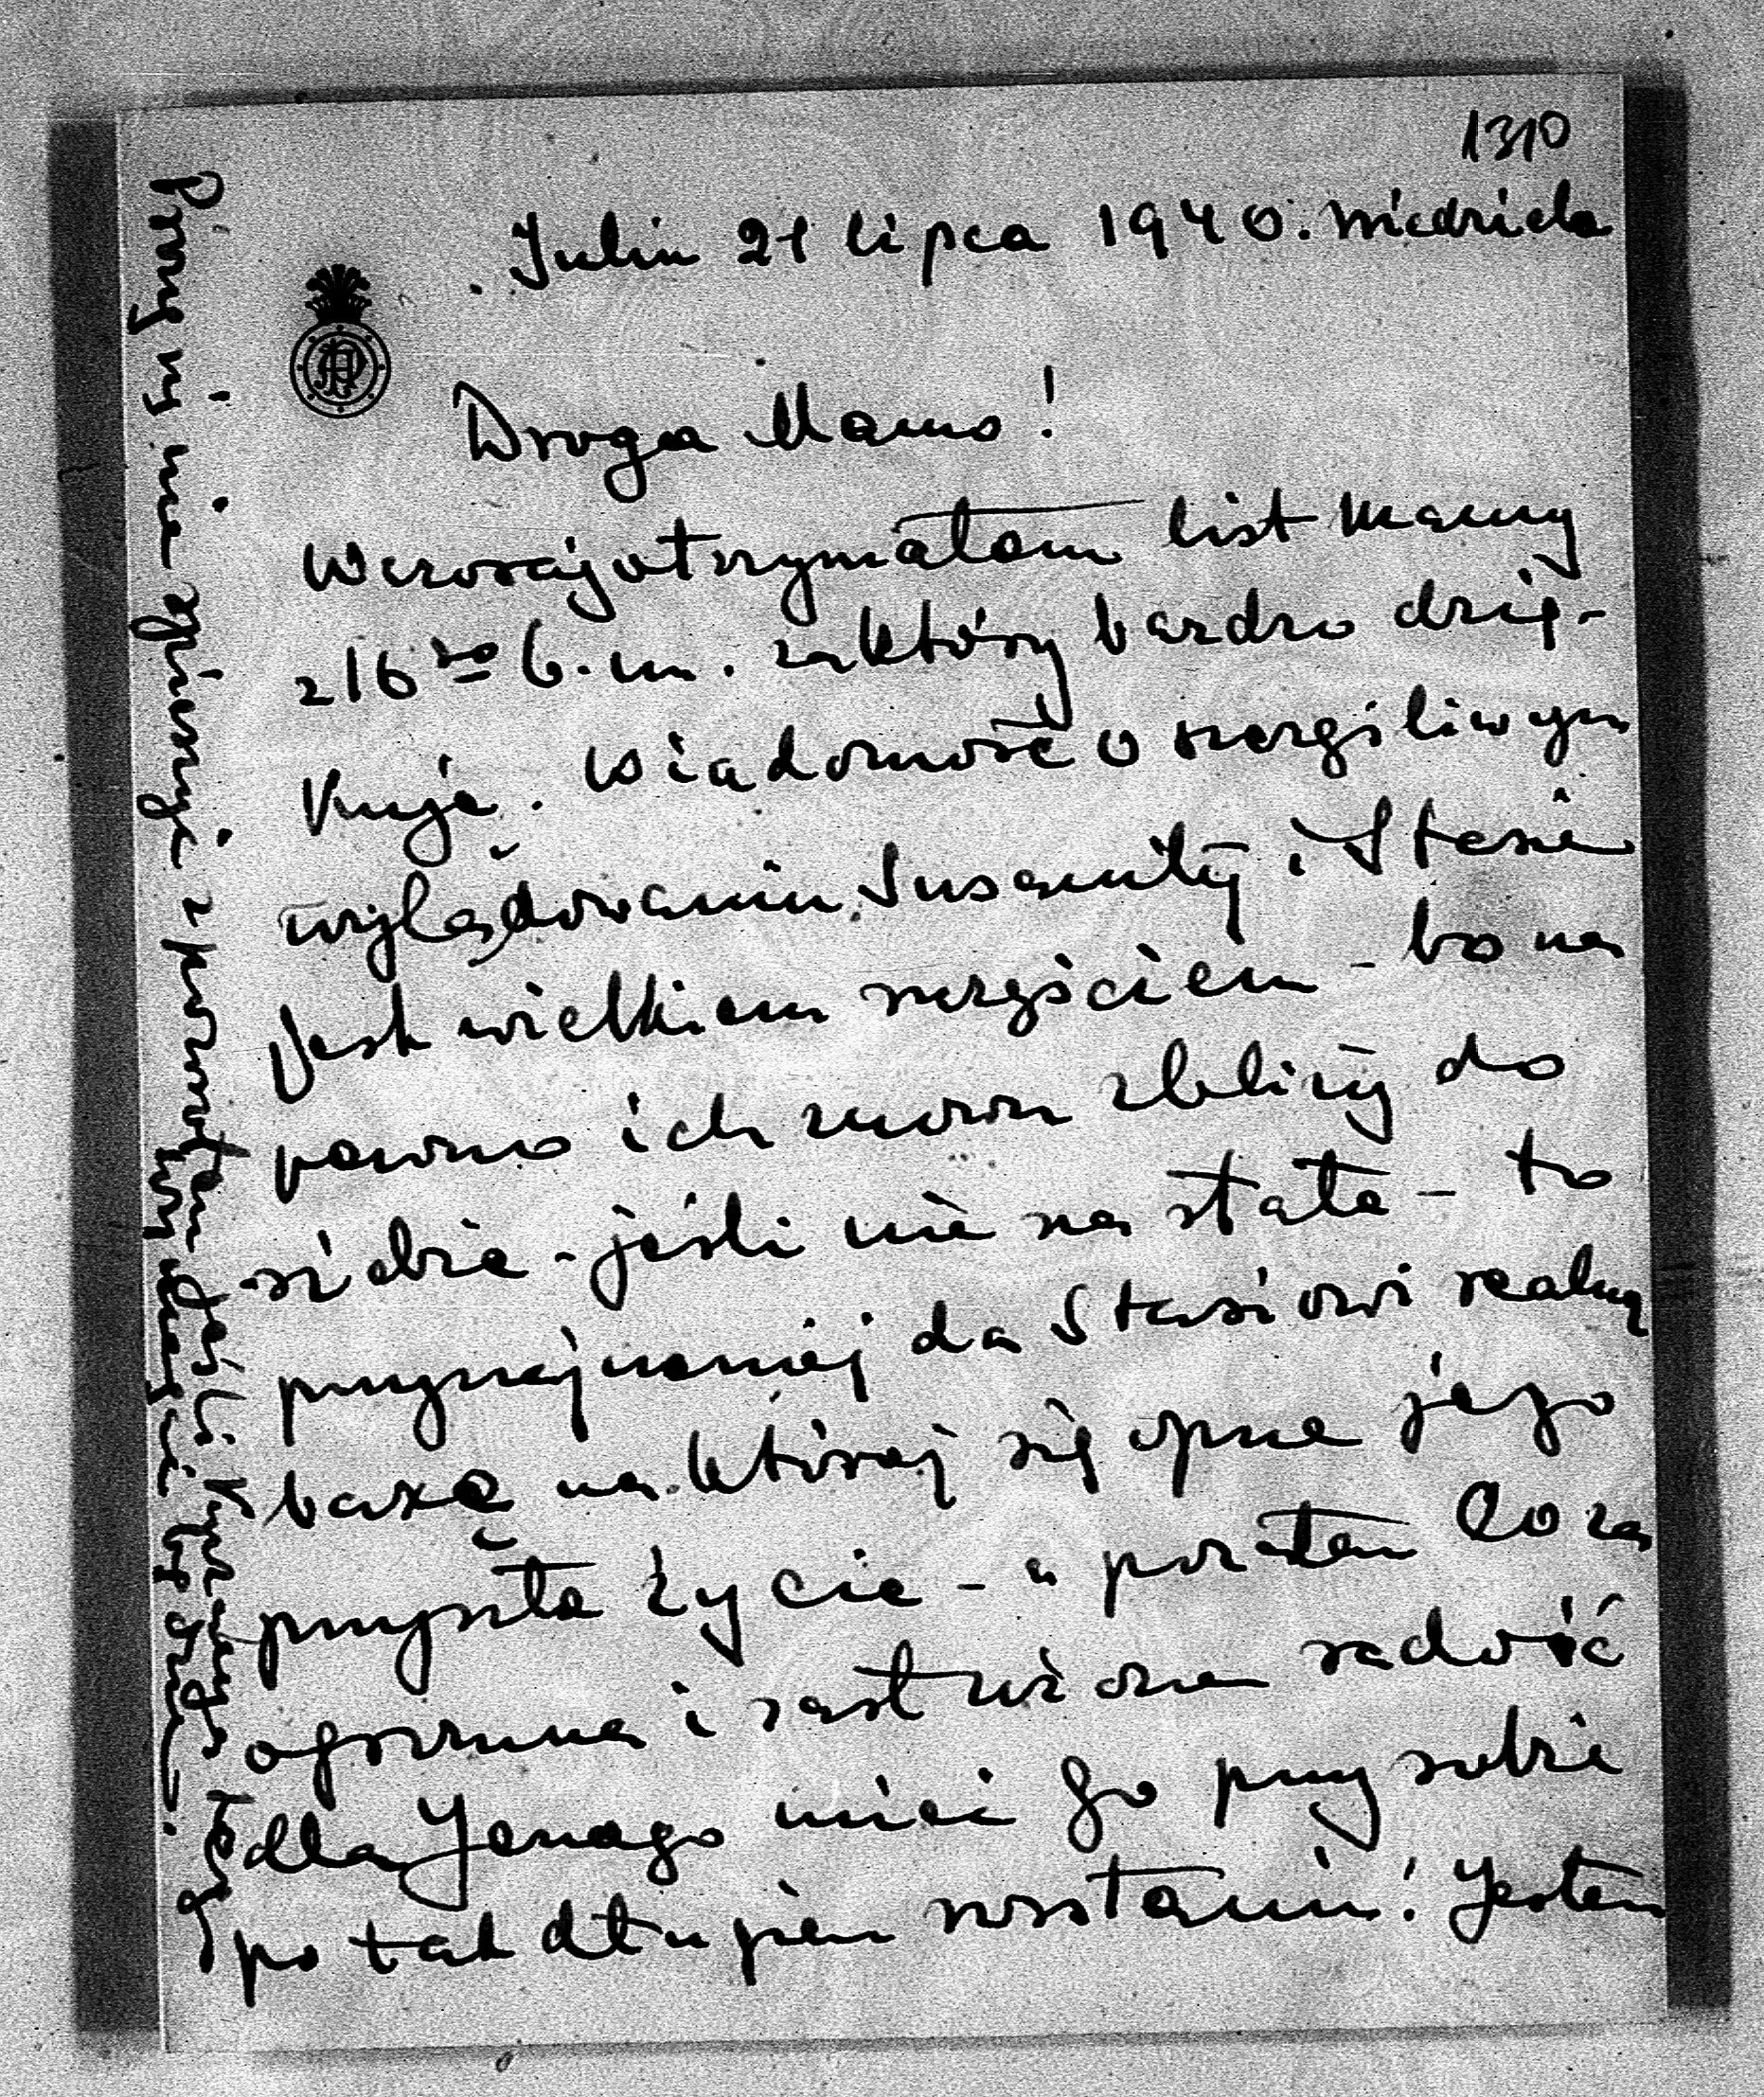 1310
Julin 21 lipca 1940. niedziela
Droga Mamo!
Wczoraj otrzymałem list Mamy
z 16go b.m. za który bardzo dzię-
kuję. Wiadomość o szczęśliwym
wylądowaniu Susanity i Stasia
jest wielkiem szczęściem - bo na
pewno ich znowu zbliży do
siebie - jeśli nie na stałe - to
przynajmniej da Stasiowi realną
bazę na której się oprze jego
przyszłe życie - a pozatem Co za
ogromna i zasłużona radość
dla Jenego mieć Go przy sobie
po tak długiem rozstaniu! Jestem
Piszę
z powrotem
jeśli